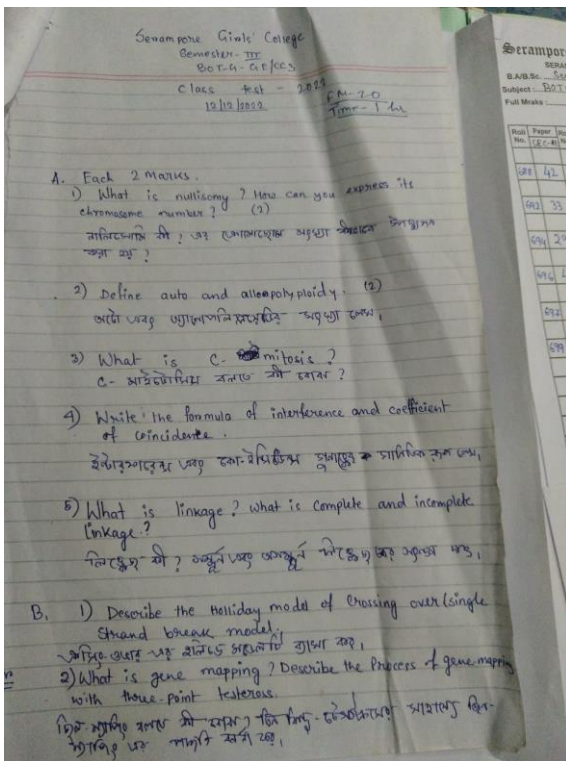 Serampore Girls' College
Semester - III
BOT-G - GE/CC3
Class test - 2022
12/12/2022
FM-20
Time - 1 hr
A. Each 2 marks.
1) What is nullisomy? How can you express its
chromosome number? (2)
নালিসোমি কী? এর ক্রোমোজোম সংখ্যা কীভাবে
করা হয়?
2) Define auto and allopolyploidy. (2)
অটো এবং
3) What is C- mitosis?
C- মাইটোসিস বলতে কী বোঝ?
4) Write the formula of interference and coefficient
of coincidence.
ইন্টারফারেন্স এবং
5) What is linkage? what is complete and incomplete
linkage?
কী? সম্পূর্ণ এবং অসম্পূর্ণ
B. 1) Describe the Holliday model of Crossing over (single
Strand break model).
ক্রসিং ওভার এর হলিডে মডেলটি ব্যাখ্যা কর।
2) What is gene mapping? Describe the Process of gene mapping
with three-point testcross.
জিন ম্যাপিং বলতে কী বোঝ? তিন বিন্দু সাহায্যে জিন-
ম্যাপিং এর পদ্ধতি বর্ণনা কর।
Serampor
SERA
B.A/B.Sc.
Subject: BOT
Full Mraks
Roll No.
Paper
688 42
692 33
694 29
696
697
699